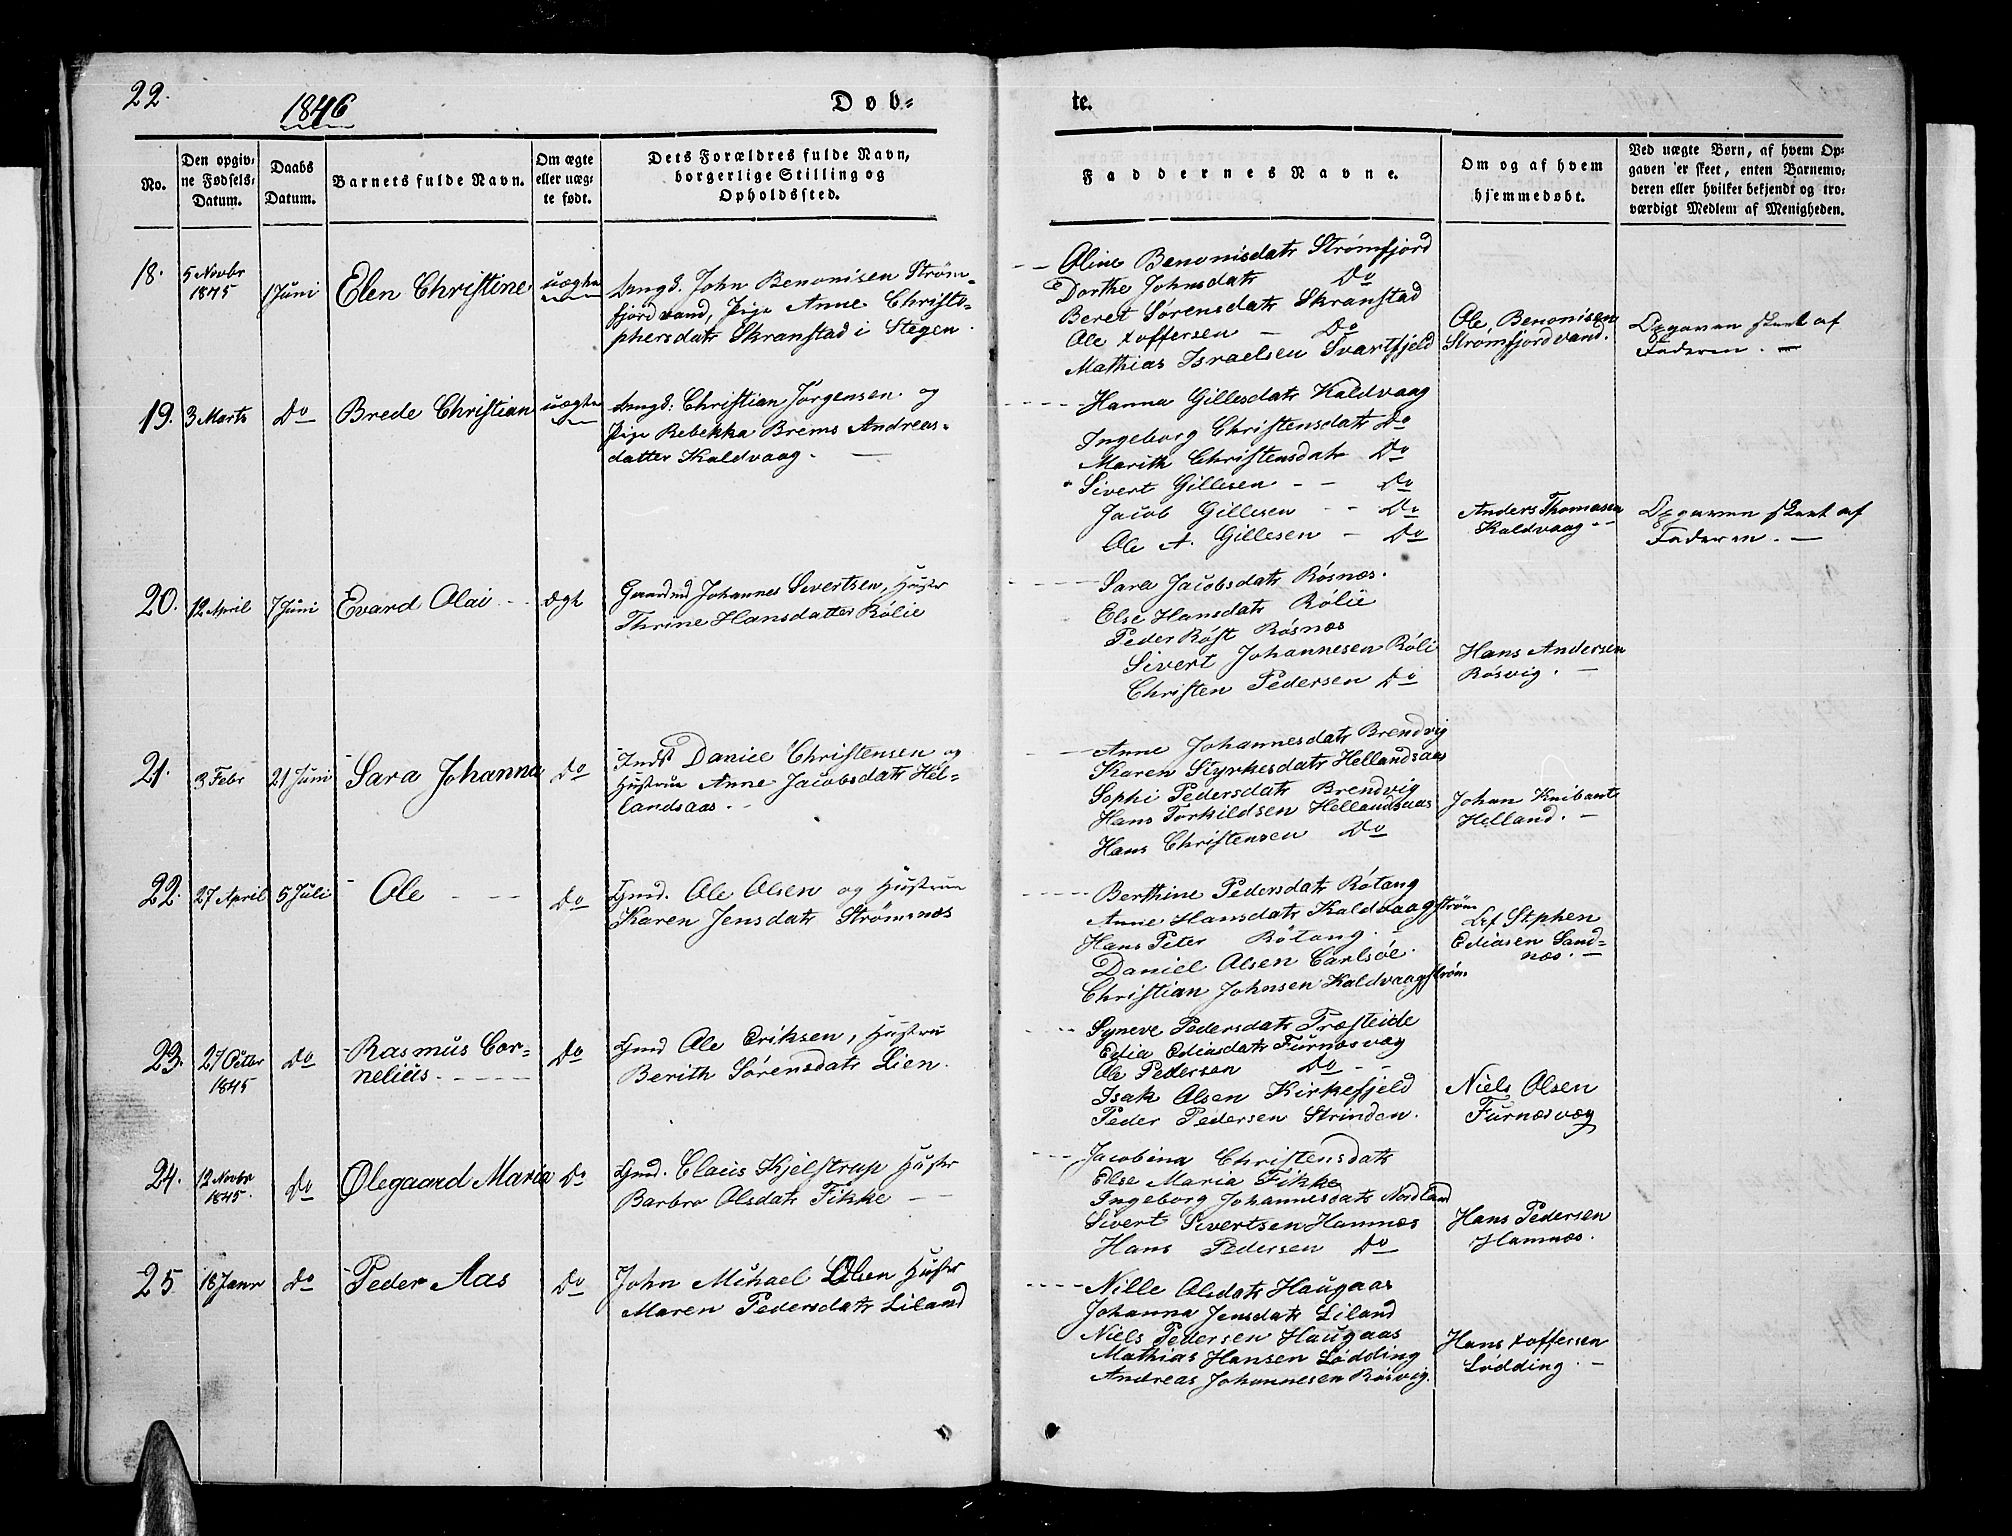 22.
1846
Døb-
te.
No.
Den opgiv-
ne Fødsels-
Datum.
Daabs
Datum.
Barnets fulde Navn.
Om ægte
eller uæg-
te født.
Dets Forældres fulde Navn,
borgerlige Stilling og
Opholdssted.
Faddernes Navne.
Om og af hvem
hjemmedøbt.
Ved uægte Børn, af hvem Op-
gaven er skeet, enten Barnemo-
deren eller hvilket bekjendt og tro-
værdigt Medlem af Menigheden.
18. 5 Novbr
1845
1 Juni
Elen Christine
uægte
Ungk. John Benonisen Strøm-
fjordvand, Pige Anne Christo-
phersdatr Skranstad i Stegen.
Oline Benonisdatr Strømfjord
Dorthe Johnsdatr Do
Beret Sørensdatr Skranstad
Ole Xoffersen - Do
Mathias Israelsen Svartfjeld
Ole Benonisen
Strømfjordvand.
Opgaven skeet af
Faderen. -
19. 3 Marts
Do
Brede Christian
uægte
Ungk. Christian Jørgensen og
Pige Rebekka Brems Andreas-
datter Kaldvaag. -
Hanna Gillesdatr Kaldvaag
Ingeborg Christensdatr Do
Marith Christensdatr Do
Sivert Gillesen - - Do
Jacob Gillesen - - Do
Ole A. Gillesen - Do
Anders Thomasen
Kaldvaag -
Opgaven skeet af
Faderen. -
20. 12 April
7 Juni
Evard Olai - -
ægt
Gaardmd Johannes Sivertsen, Hustr
Thrine Hansdatter Rølie
Sara Jacobsdatr Røsnæs.
Else Hansdatr Rølie
Peder Røst Røsnæs
Sivert Johannesen Røli
Christen Pedersen Do
Hans Andersen
Røsvig. -
21. 3 Febr
21 Juni
Sara Johanna
Do
Indst Daniel Christensen og
Hustrue Anne Jacobsdatr Hel-
landsaas. -
Anne Johannesdatr Brendvig
Karen Styrkesdatr Hellandsaas
Sophi Pedersdatr Brendvig
Hans Torkildsen Hellandsaas
Hans Christensen Do
Johan Knibant
Helland. -
22. 27 April
5 Juli
Ole - - -
Do
Gmd. Ole Olsen og Hustrue
Karen Jensdatr Strømsnæs
Berthine Pedersdatr Røtang
Anne Hansdatr Kaldvaagstrøm
Hans Peter Røtang.
Daniel Olsen Carlsøe.
Christian Johnsen Kaldvaagstrøm
Stphen
Ediasen Sand-
næs. -
23. 27 Octbr
1845
Do
Rasmus Cor-
nelius. - - -
Do
Gmd Ole Eriksen, Hustru
Berith Sørensdatr Lien.
Syneve Pedersdatr Træsteide
Edia Ediasdatr Furnæsvæg
Ole Pedersen Do - -
Isak Olsen Kirkefjeld
Peder Pedersen Strinden.
Niels Olsen
Furnæsvæg
24. 12 Novbr
1845.
Do
Olegaard Maria
Do
Gmd. Claus Kjelstrup Hustr
Barbro Olsdatr Fikke - -
Jacobina Christensdatr
Else Maria Fikke
Ingeborg Johannesdatr Nordland
Sivert Sivertsen Hamnæs
Hans Pedersen Do
Hans Pedersen
Hamnæs.
25 18 Janr
Do
Peder Aas
Do
John Mikael Olsen Hustr
Maren Pedersdatr Liland
Nille Olsdatr Haugaas
Johanna Jensdatr Liland
Niels Pedersen Haugaas
Mathias Hansen Lødding
Andreas Johannesen Røsvig.
Hans Xoffersen
Lødding. -